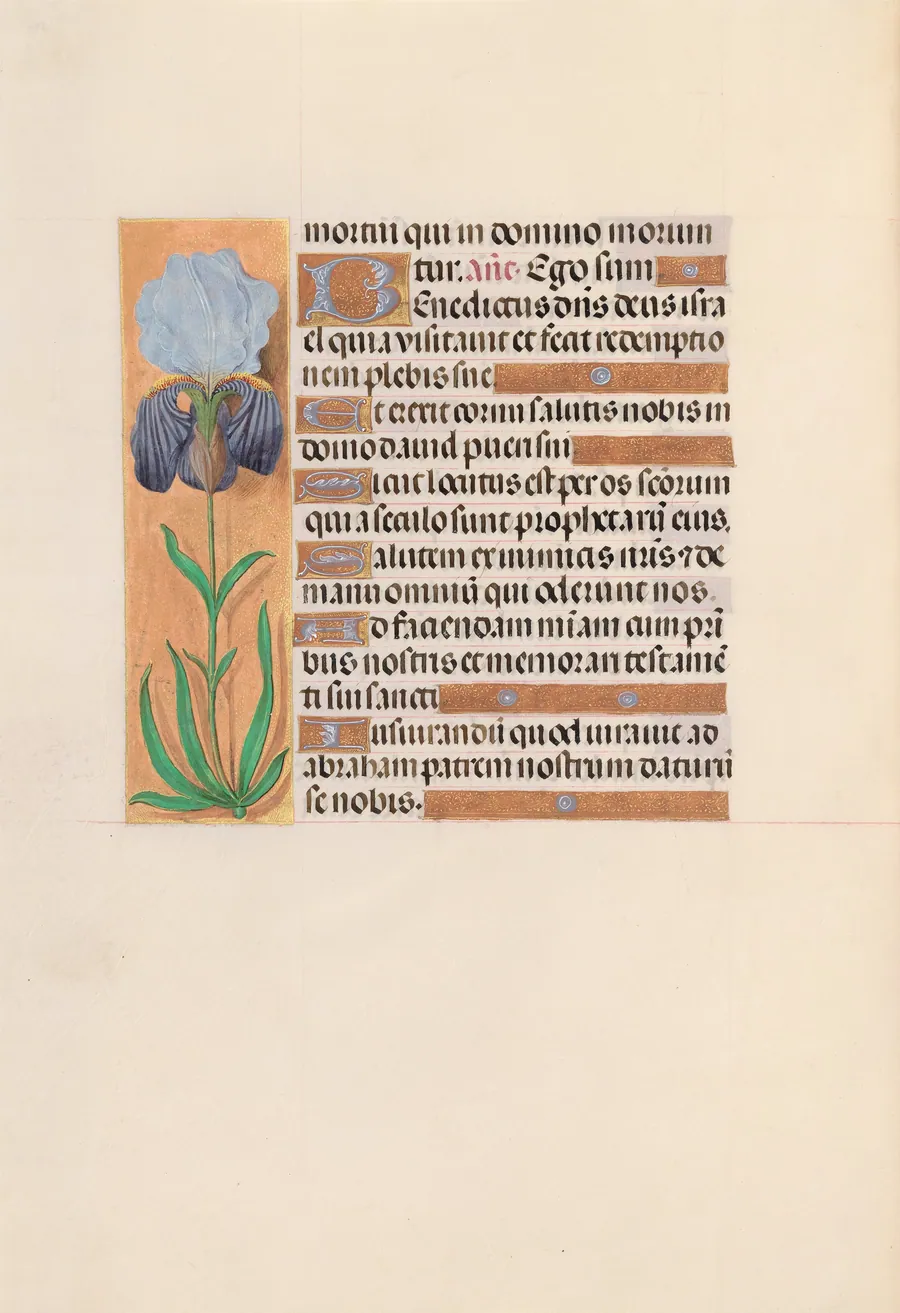 mortui qui in domino moriun
tur. Añe. Ego sum
Benedictus dñs deus isra
el quia visitavit et fecit redemptio
nem plebis sue
Et erexit cornu salutis nobis in
domo david pueri sui
Sicut locutus est per os scōrum
qui a seculo sunt prophetarū eius.
Salutem ex inimicis nr̄is ⁊ de
manu omniū qui oderunt nos.
Ad faciendam mīam cum pr̄i
bus nostris et memorari testamē
ti sui sancti
Iusiurandū quod iuravit ad
abraham patrem nostrum daturū
se nobis.